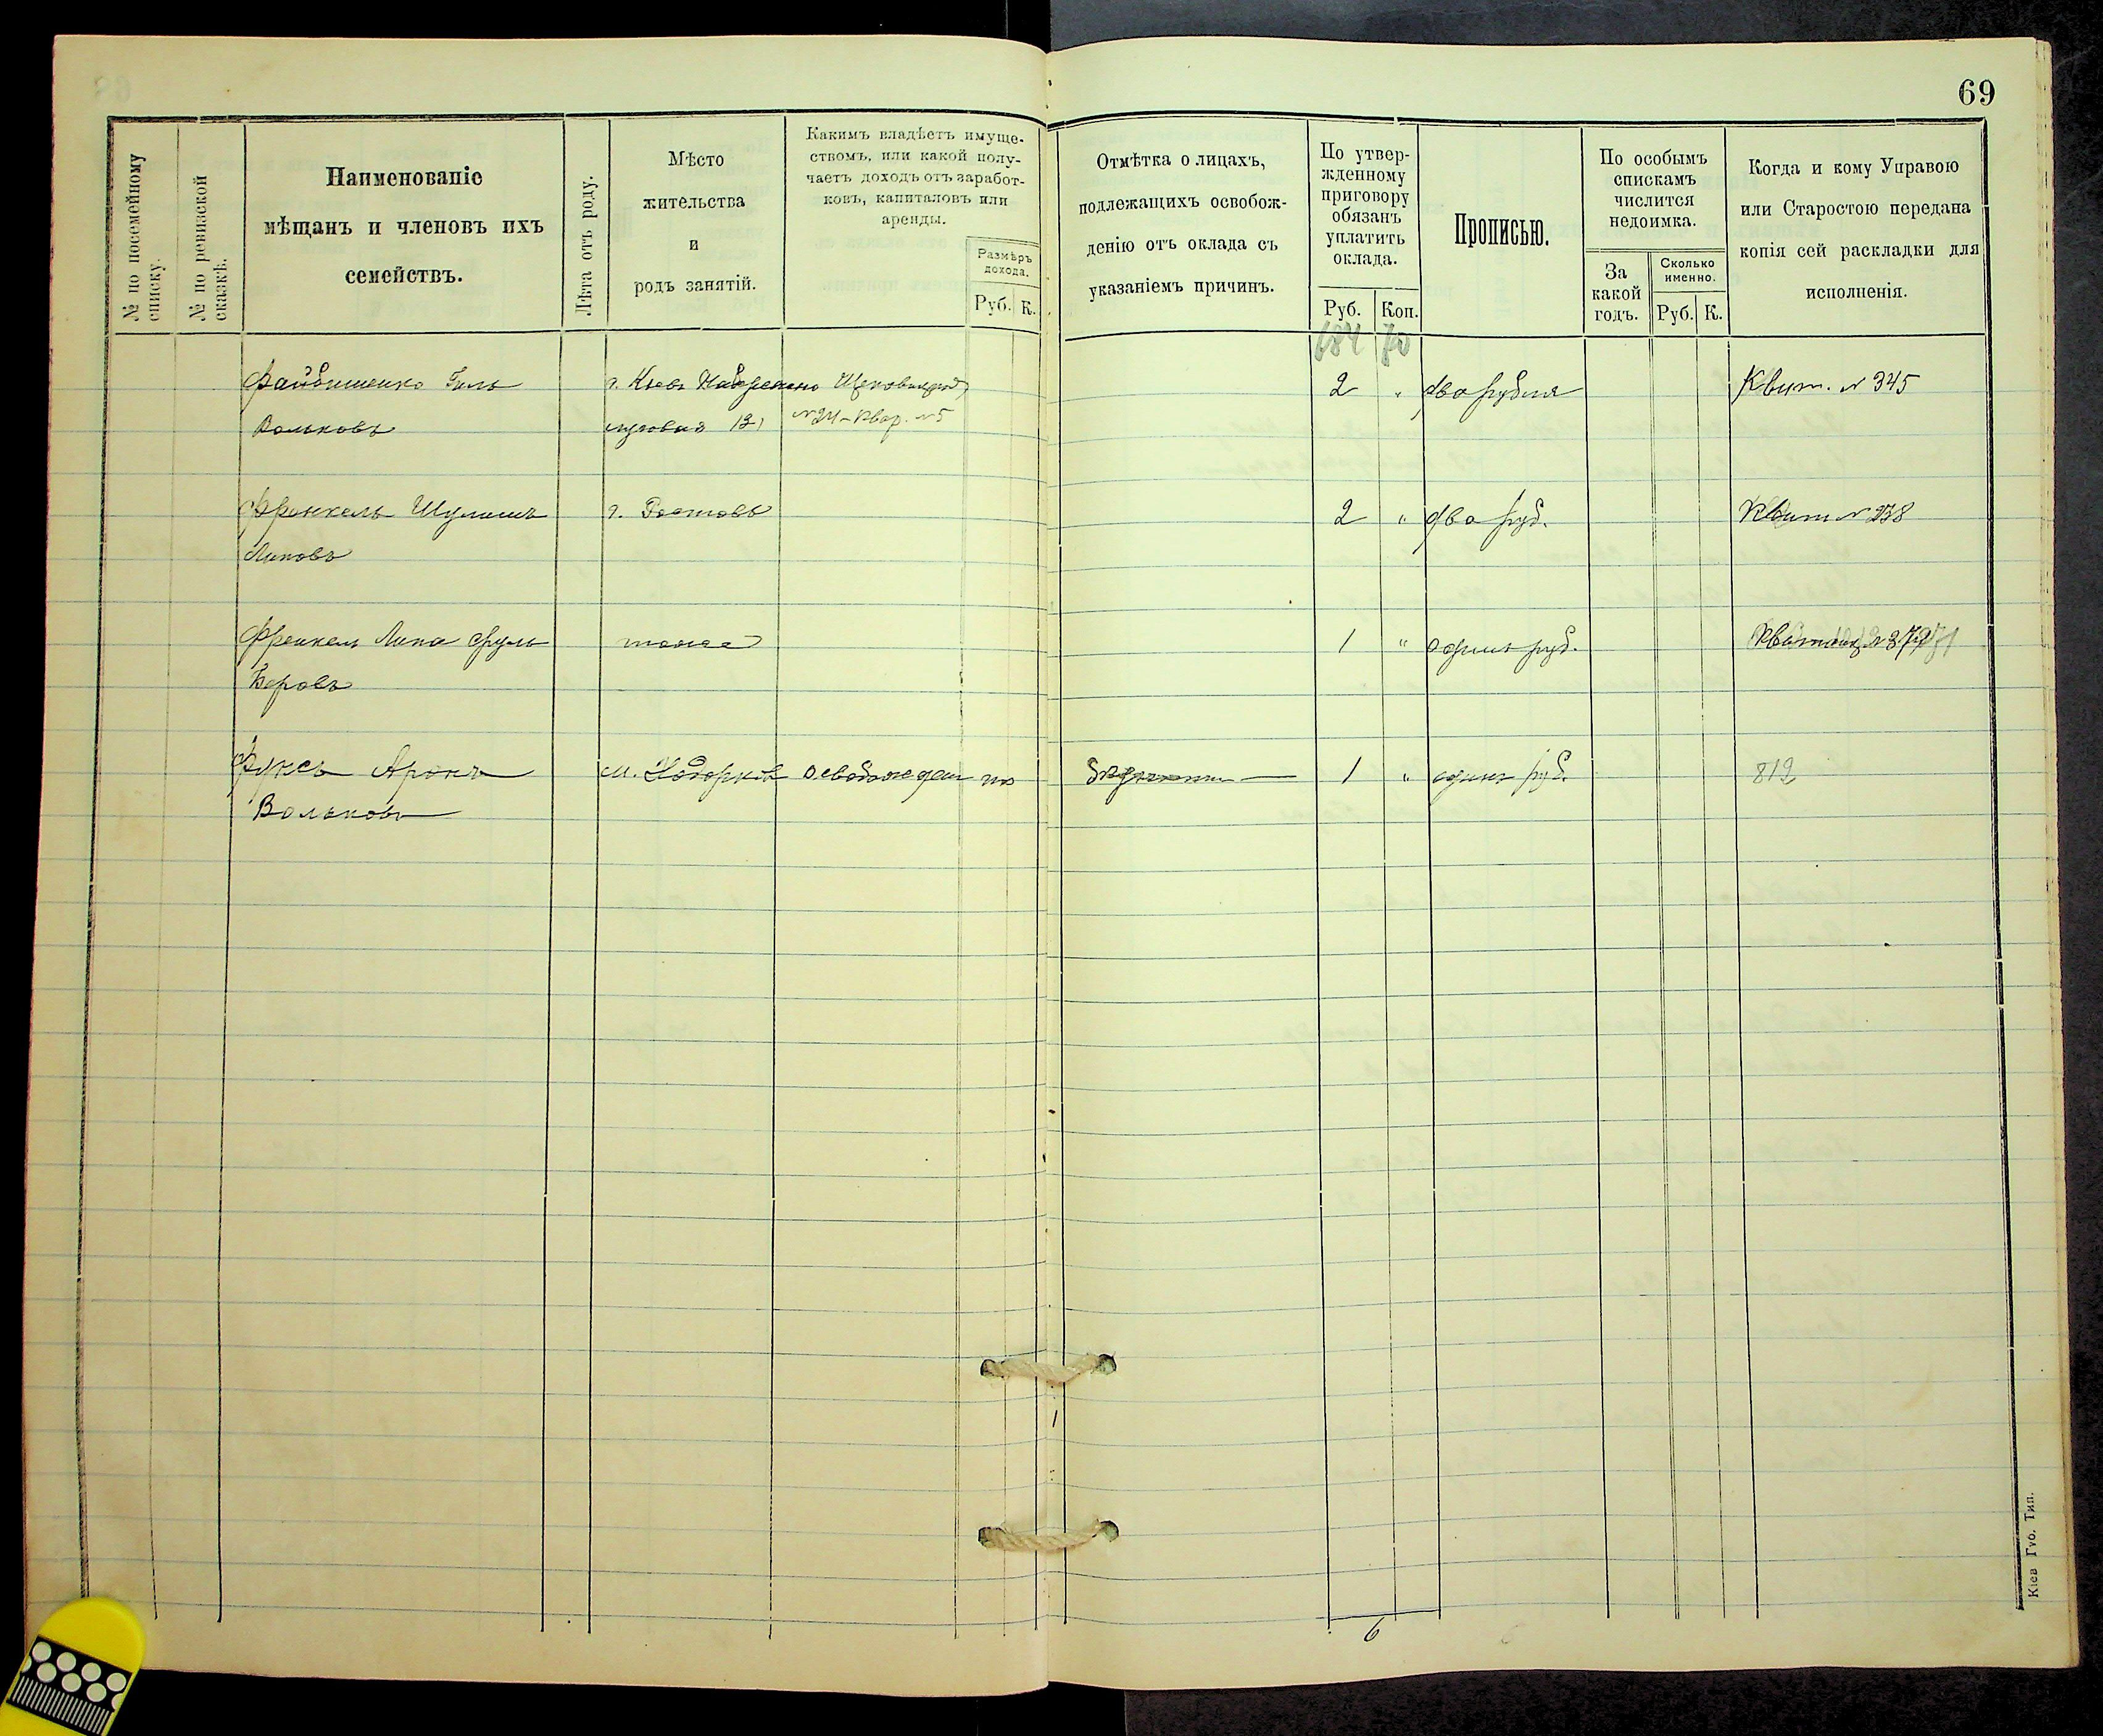 69
№ по посемейному списку.
№ по ревизской сказкѣ.
Наименованіе
мѣщанъ и членовъ ихъ
семействъ.
Лѣта отъ роду.
Мѣсто
жительства
и
родъ занятій.
Какимъ владѣетъ имуще-
ствомъ, или какой полу-
чаетъ доходъ отъ заработ-
ковъ, капиталовъ или
аренды.
Размѣръ
дохода.
Руб. К.
Отмѣтка о лицахъ,
подлежащихъ освобож-
денію отъ оклада съ
указаніемъ причинъ.
По утвер-
жденному
приговору
обязанъ
уплатить
оклада.
Руб. Коп.
Прописью.
По особымъ
спискамъ
числится
недоимка.
За
какой
годъ.
Сколько
именно.
Руб. К.
Когда и кому Управою
или Старостою передана
копія сей раскладки для
исполненія.
684 70
Файбишенко Гиль г. Кіевъ 2 " два рубля Квит. № 345
Вольковъ луговая № 24 - Квар. № 5
Френкель Шулимъ г. Ростовъ 2 " два руб. Квит №
Липовъ
Френкель Липа Сруль тоже 1 " одинъ руб.
Беровъ
Фуксъ Аронъ м. Ходорковъ освобожденъ по бѣдности 1 " одинъ руб. 812
Вольковъ
6
Кіев Губ. Тип.